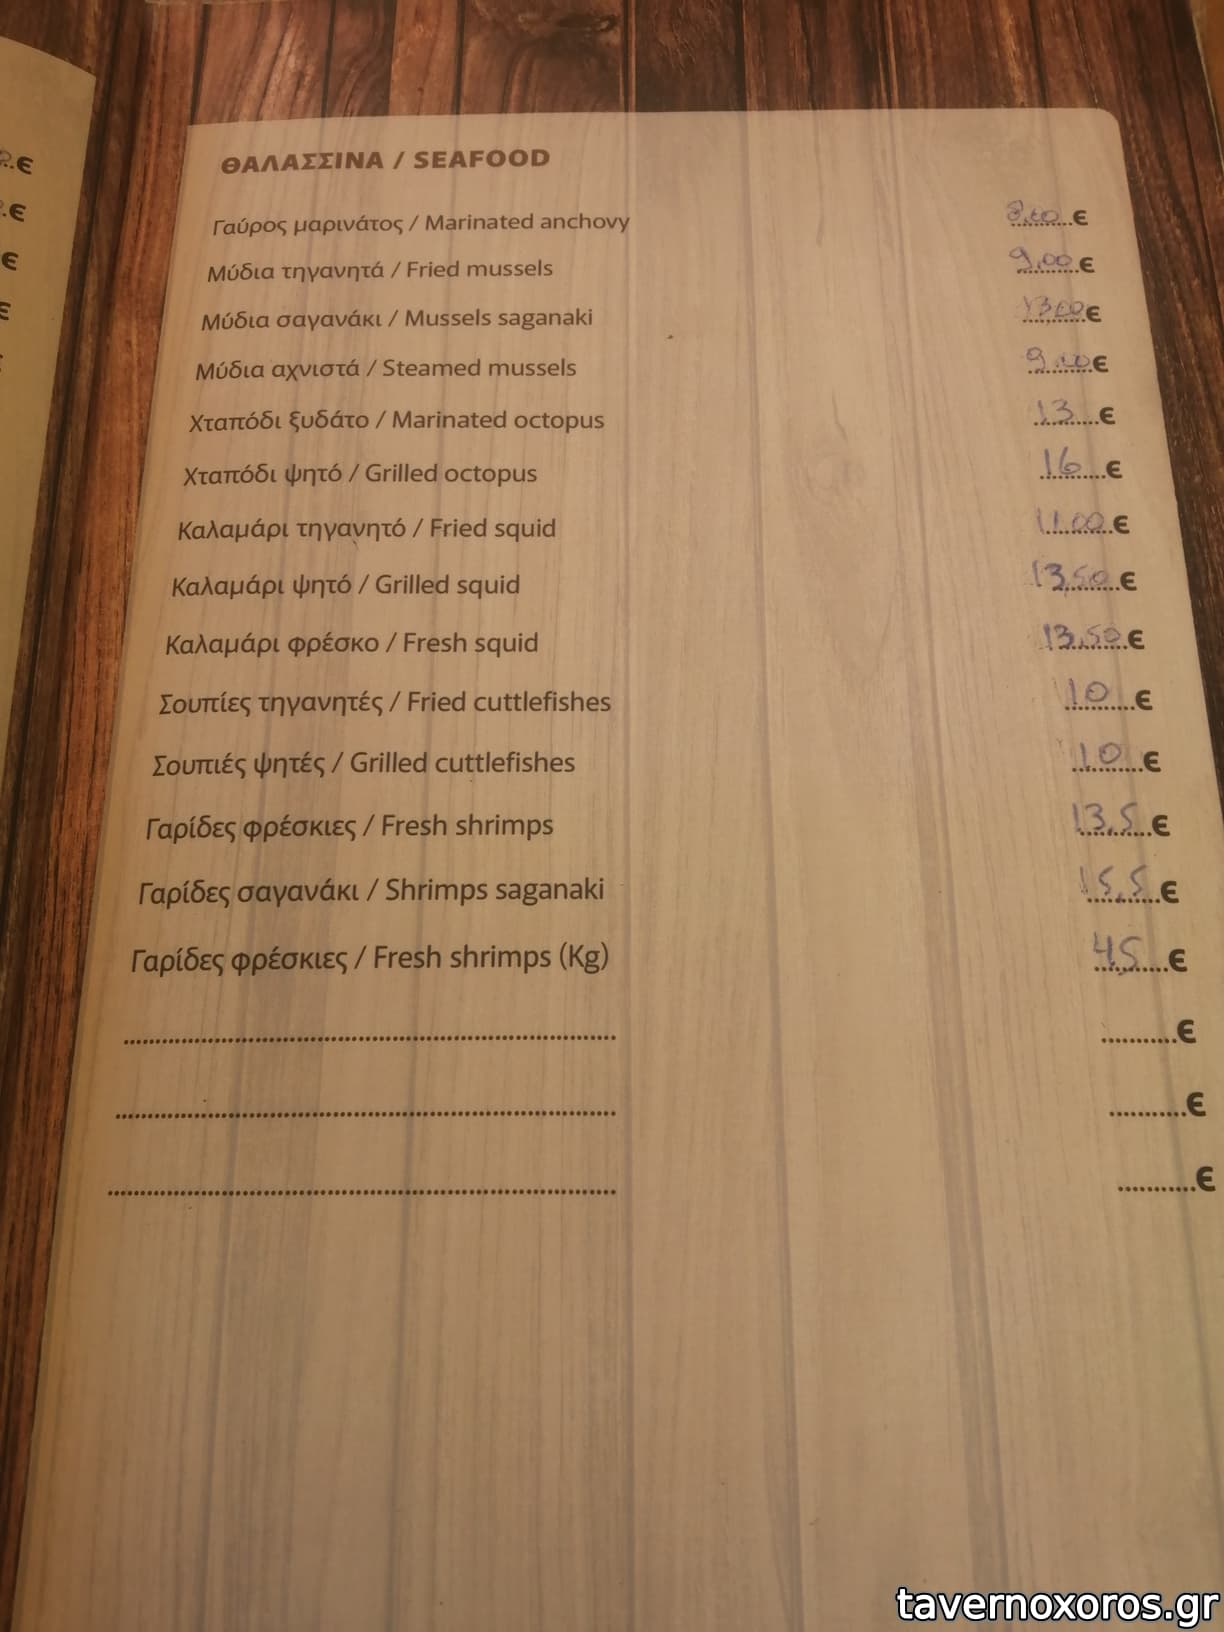 ΘΑΛΑΣΣΙΝΑ / SEAFOOD
Γαύρος μαρινάτος / Marinated anchovy ...........€
Μύδια τηγανητά / Fried mussels 9,00 €
Μύδια σαγανάκι / Mussels saganaki 13,00 €
Μύδια αχνιστά / Steamed mussels 9,00 €
Χταπόδι ξυδάτο / Marinated octopus 13 €
Χταπόδι ψητό / Grilled octopus 16 €
Καλαμάρι τηγανητό / Fried squid 11,00 €
Καλαμάρι ψητό / Grilled squid 13,50 €
Καλαμάρι φρέσκο / Fresh squid 13,50 €
Σουπίες τηγανητές / Fried cuttlefishes 10 €
Σουπιές ψητές / Grilled cuttlefishes 10 €
Γαρίδες φρέσκιες / Fresh shrimps 13,5 €
Γαρίδες σαγανάκι / Shrimps saganaki 15,5 €
Γαρίδες φρέσκιες / Fresh shrimps (Kg) 45 €
...........€
...........€
...........€
tavernoxoros.gr